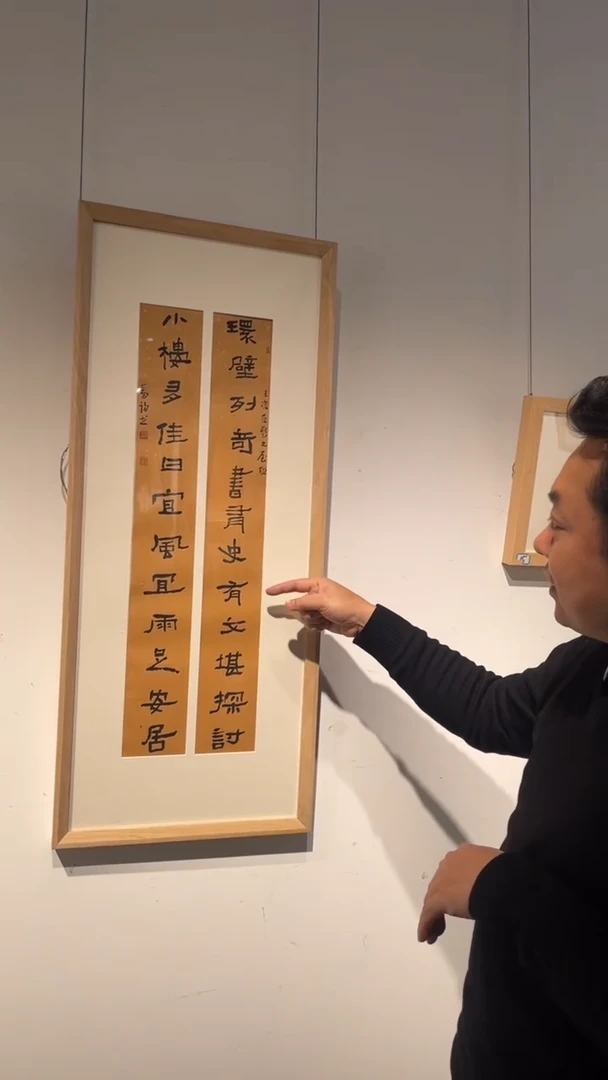 環壁列奇書有史有文堪探討
小樓多佳日宜風宜雨足安居